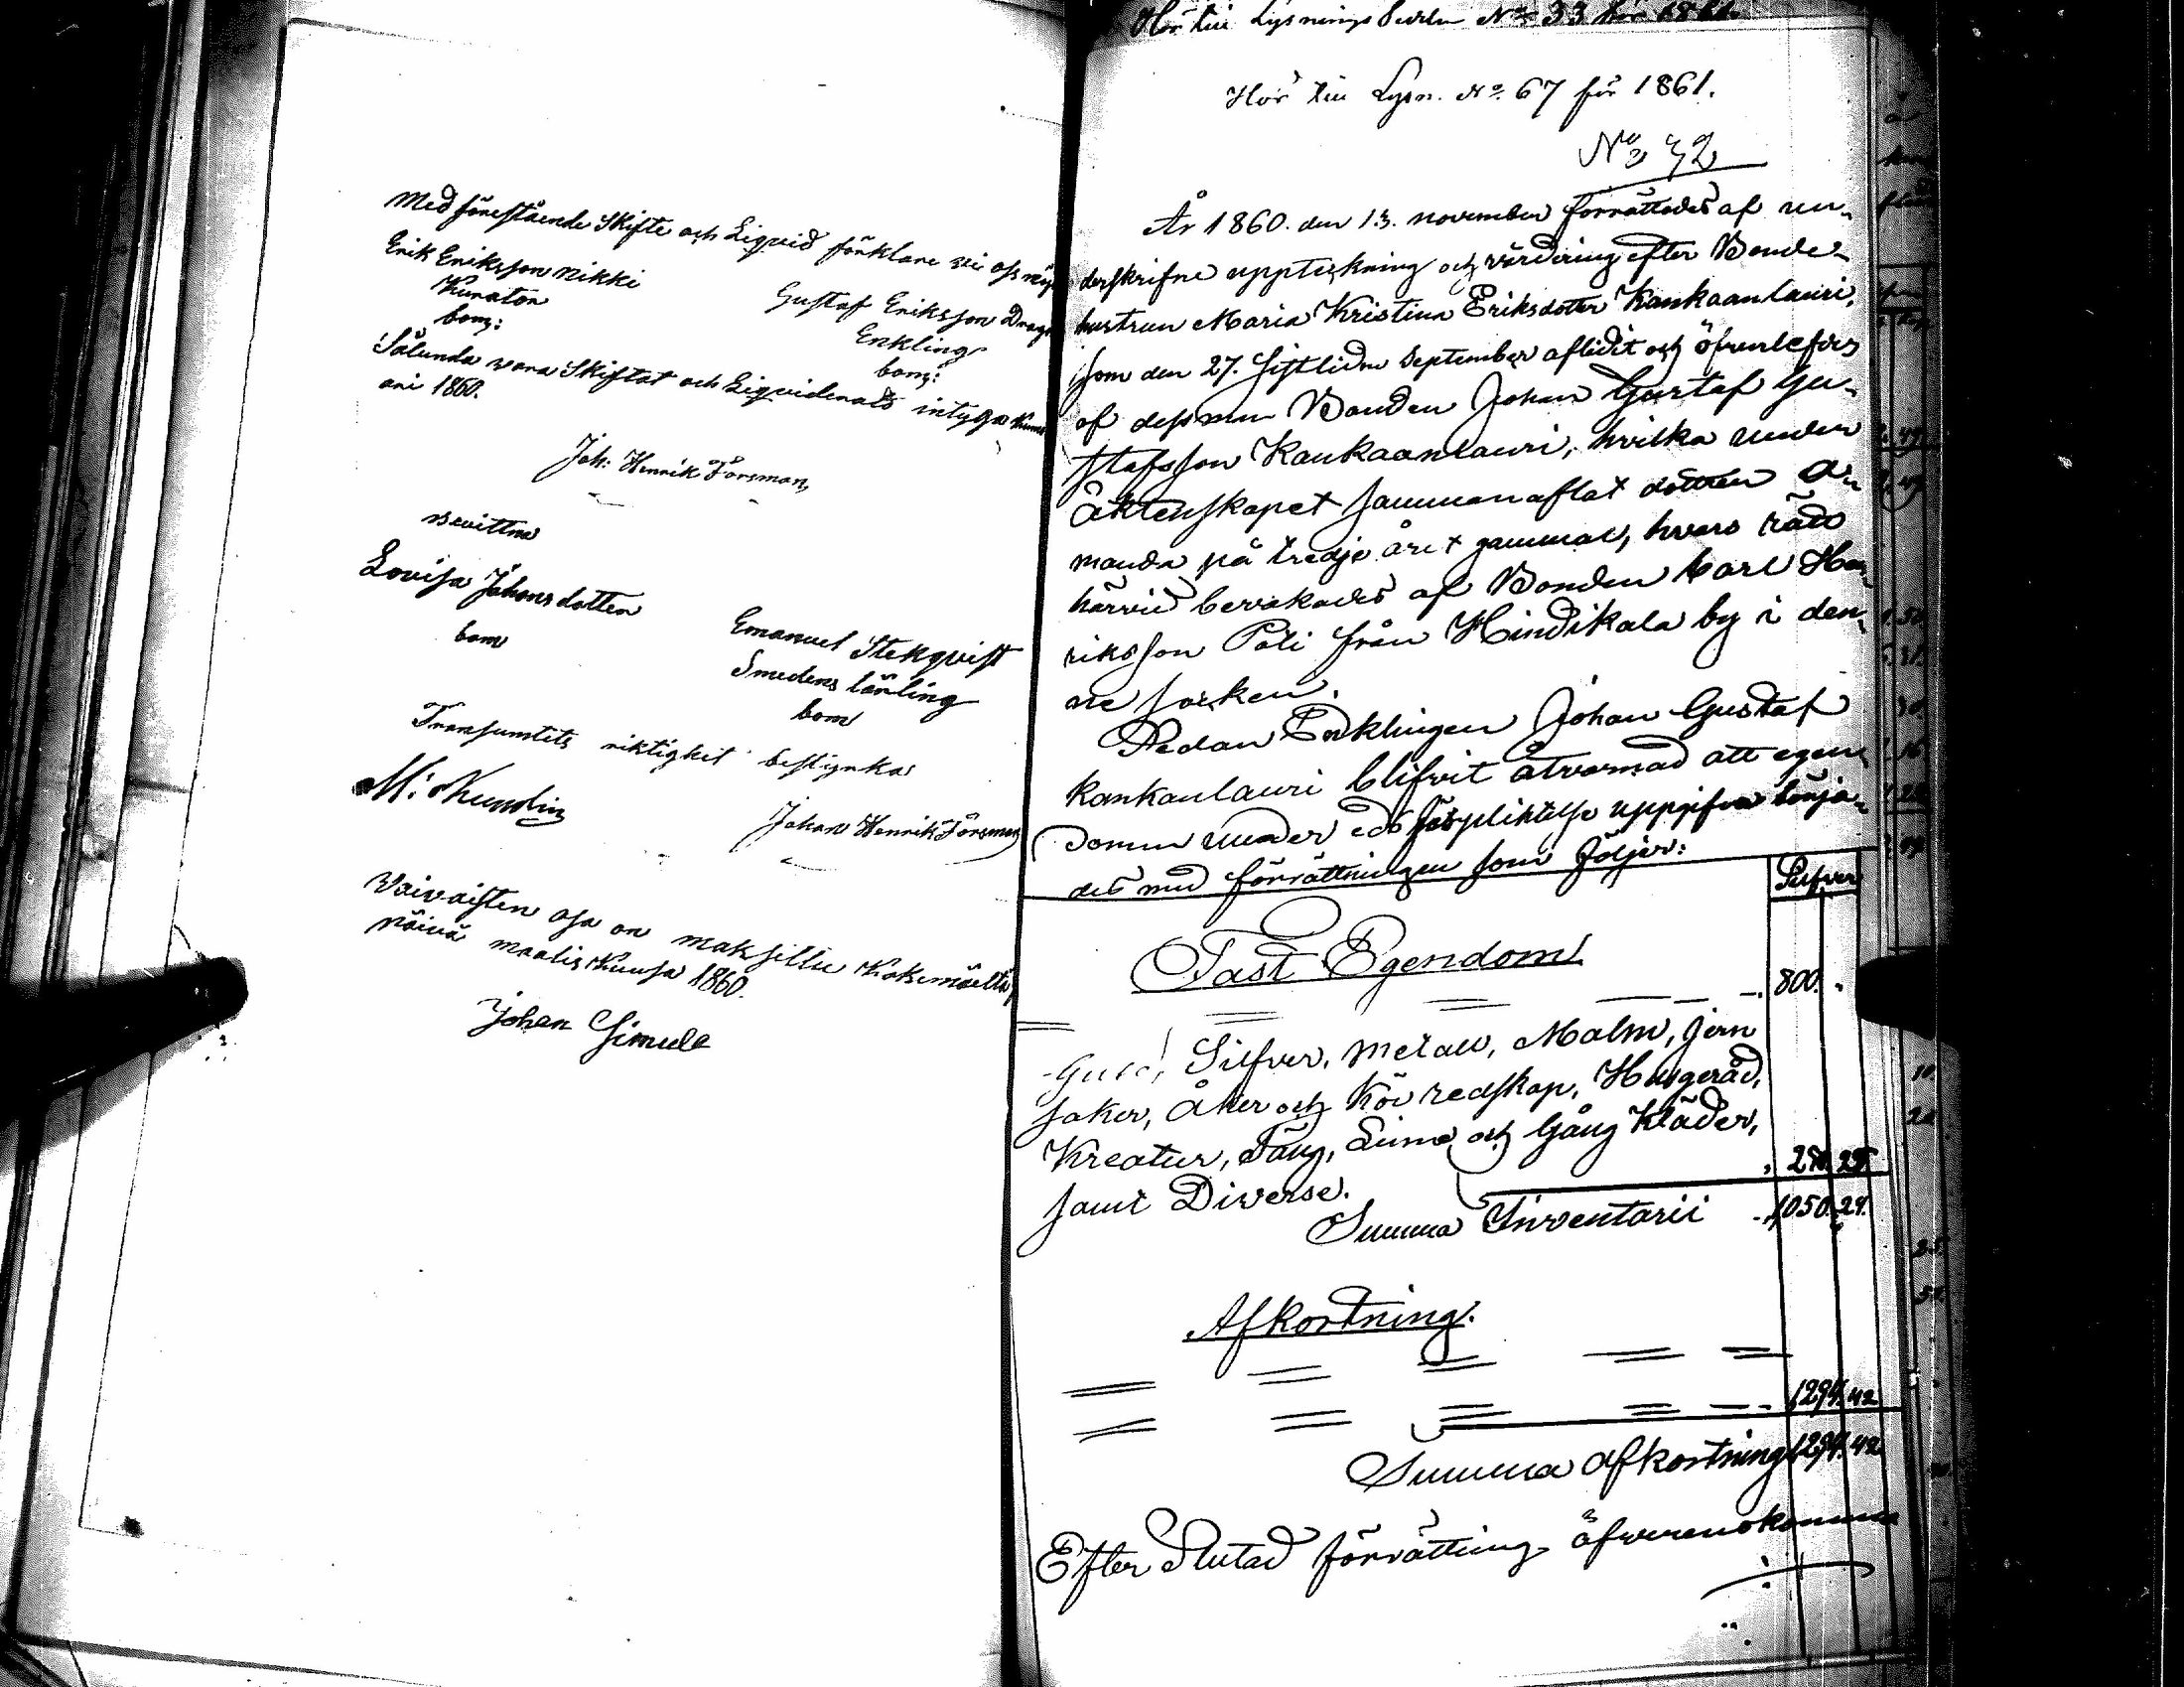 Med förestående Skifte och Liqvid förklare vi oss nöj
Erik Eriksson Nikki
Gustaf Eriksson Drags
Kurator
Enkling
bom;
bom;
Sålunda vara Skiftat och Liqviderads intyga Kumo
ani 1860.
Joh: Henrik Forsman,
Bevittna
Lovisa Johans dotter
Emanuel Stekqvist
bom
Smedens lärling
bom
Transumtets riktighet bestyrka
M: Nummelin
Johan Henrik Forsman
Vaivaisten osa on maksettu Kokemäeltä
päivä maalis Kuusa 1860.
Johan Simula
Hör till Lysnings Punkten No 33 för 1861.
Hör till Lysn. No. 67 för 1861.
No 42
År 1860. den 13. november förrättades af un-
derskrifne uppteckning och värdering efter Bonde-
hustrun Maria Kristina Eriksdotter Kankaanlauri,
som den 27. sistliden September aflidit och öfverlefvs
af dess man Bonden Johan Gustaf Gu-
stafsson Kankaanlauri, hvilka under
äktenskapet sammanaflat dottren A-
manda på tredje året gammal, hvars rätt
härvid bevakades af Bonden Carl Hen-
riksson Pöli från Hindikala by i den-
ne socken.
Sedan Enklingen Johan Gustaf
Kankanlauri blifvit åtvarnad att egen-
domen under eds förpliktelse uppgifva börja-
des med förrättningen som följer:
Silfver
Fast Egendom
800.
Guld, Silfver, Metall, Malm, Jern
saker, Åker och Kör redskap, Husgeråd,
Kreatur, Säng, Linne och Gång Kläder,
samt Diverse.
250.24.
Summa Inventarii 1,050.24.
Afkortning.
1,294.42
Summa afkortning 1,294.42
Efter Slutad förrättning öfverenskomma